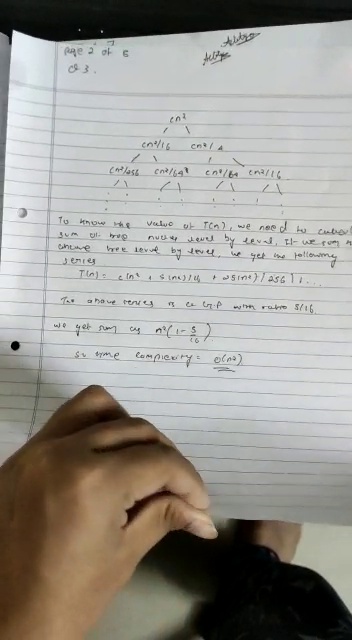 page 2 of 6
Q3.
cn²
cn²/16 cn²/4
cn²/256 cn²/64 cn²/64 cn²/16
To know the value of T(n), we need to
sum of tree nodes level by level. If we sum
above tree level by level, we get the following
series
T(n) = c(n² + 5(n²)/16 + 25(n²)/256) + ...
The above series is a G.P with ratio 5/16.
we get sum as n²(1 - 5/16)
so time complexity = O(n²)